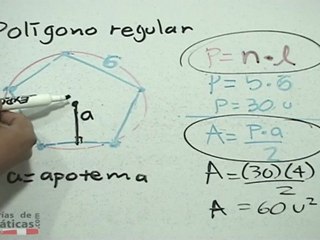 Polígono regular
6
a
a=apotema
P=n·l
P=5·6
P=30u
A=P·a/2
A=(30)(4)/2
A=60u²
rias de
máticas.com